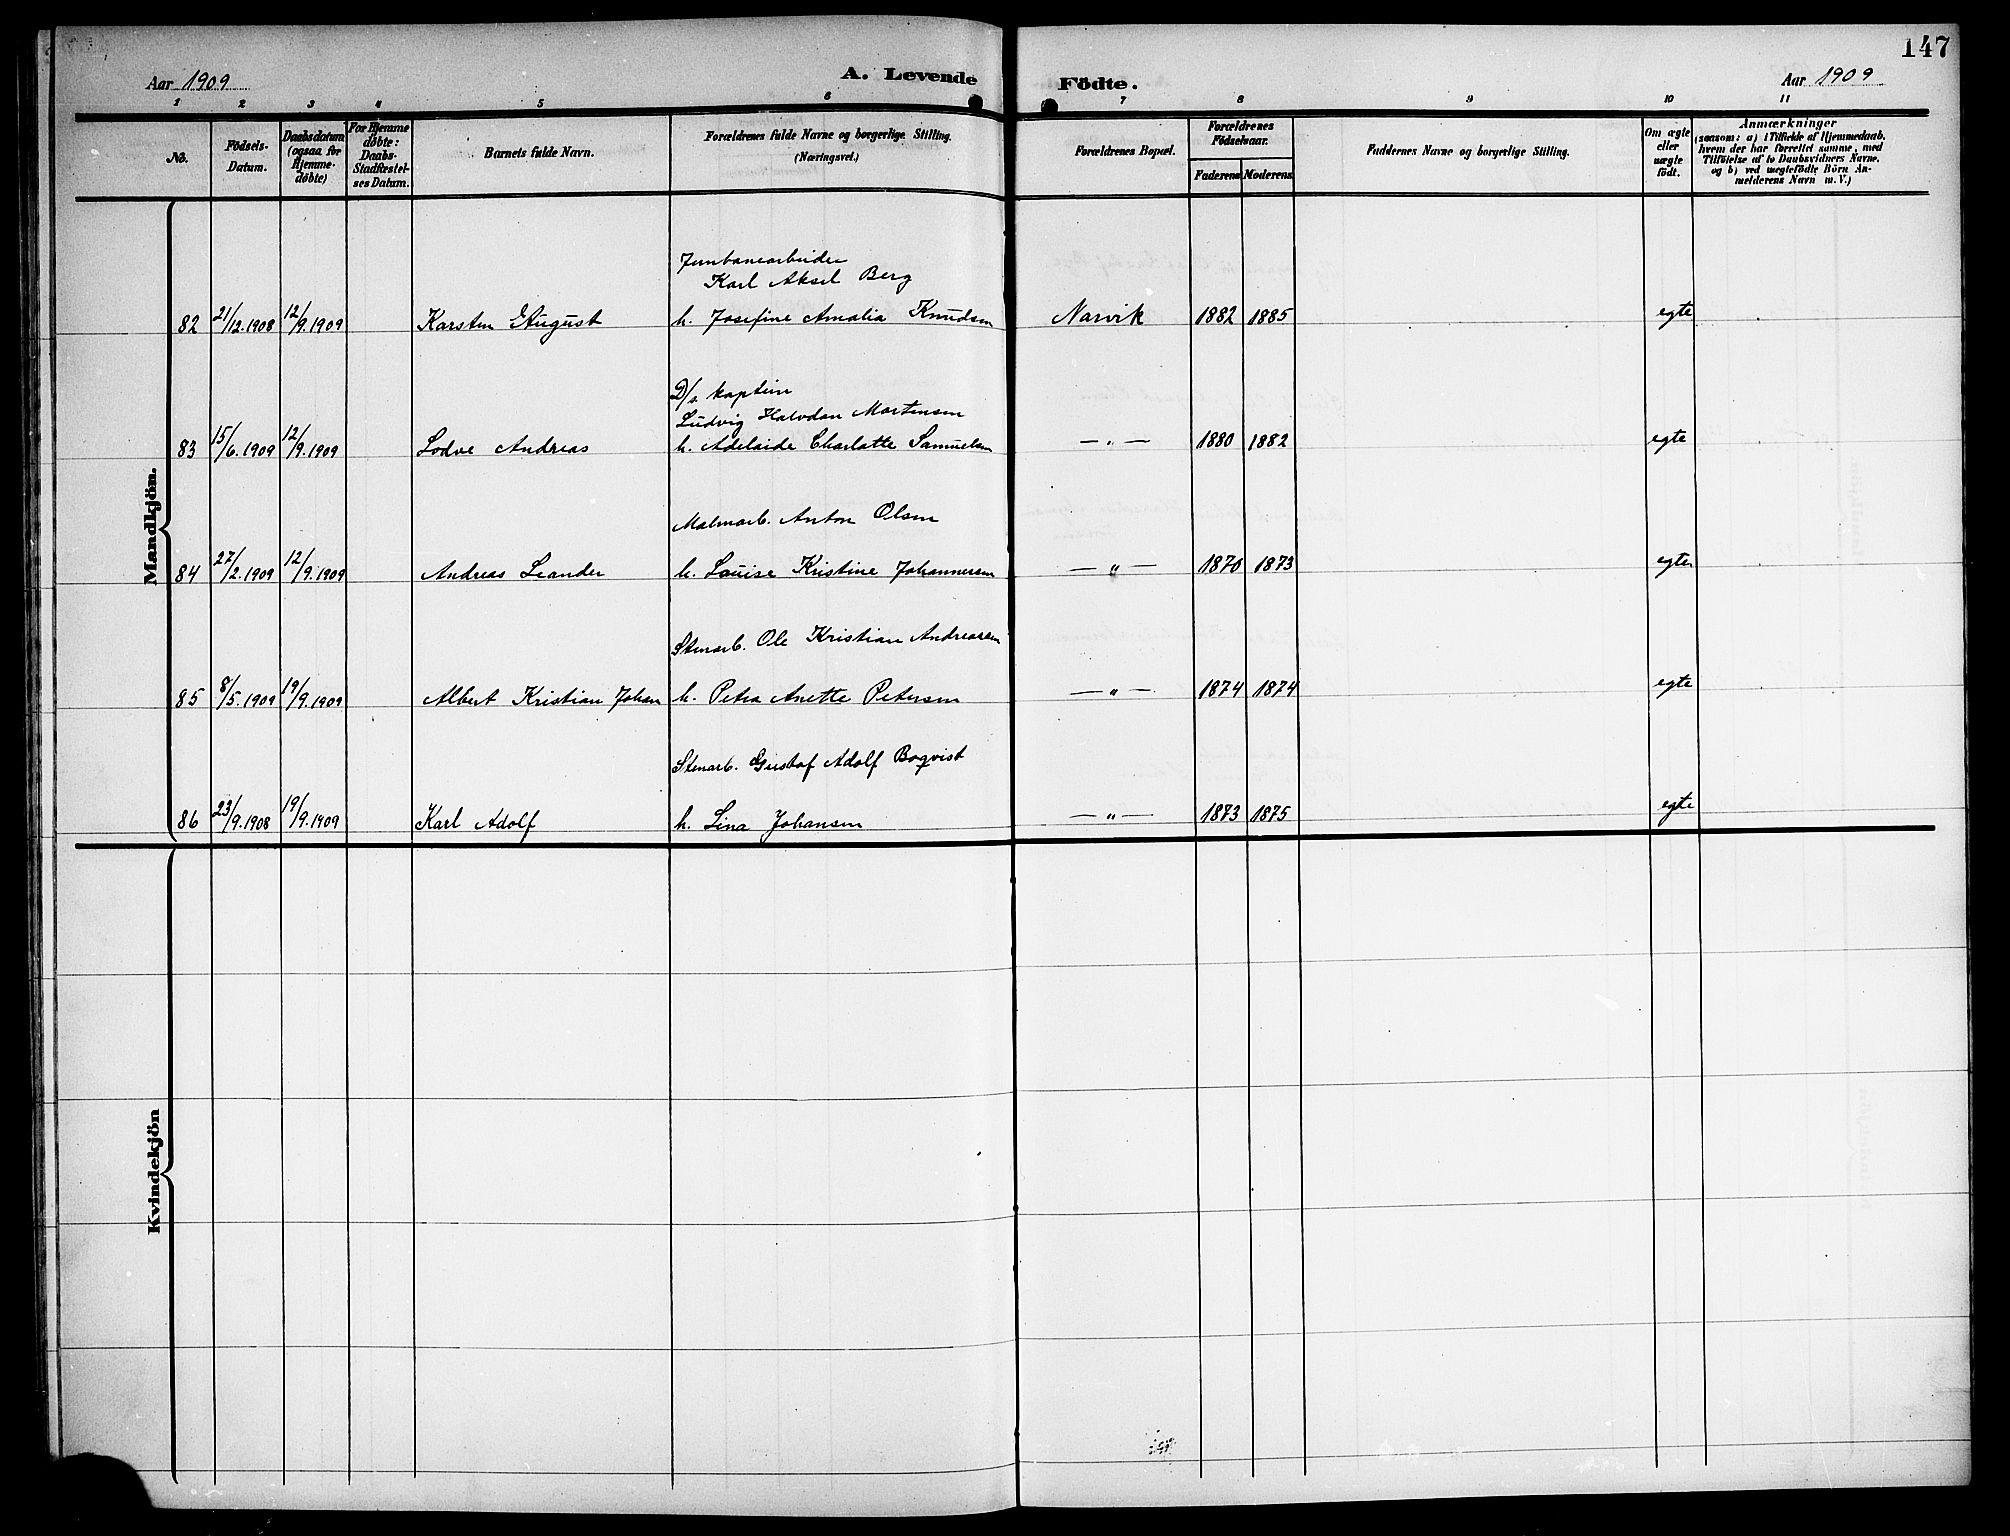 147
Aar 1909
A. Levende Födte.
Aar 1909
1 2 3 4 5 6 7 8 9 10 11
No.
Födsels-
Datum.
Daabsdatum
(ogsaa for
Hjemme-
døbte)
For Hjemme
døbte:
Daabs-
Stadfæstel-
ses Datum.
Barnets fulde Navn.
Forældrenes fulde Navne og borgerlige Stilling.
(Næringsvei.)
Forældrenes Bopæl.
Forældrenes
Födselsaar.
Faderens Moderens
Faddernes Navne og borgerlige Stilling.
Om ægte
eller
uægte
födt.
Anmærkninger
(saasom: a) i Tilfælde af Hjemmedaab,
hvem der har forrettet samme, med
Tilföielse af to Daabsvidners Navne,
og b) ved uægtefödte Börn An-
melderens Navn m. V.)
Mandkjön.
Jernbanearbeider
Karl Aksel Berg
82 21/12.1908 12/9.1909 Karsten August h. Josefine Amalia Knudsen Narvik 1882 1885 egte
D/s kaptein
Ludvig Halvdan Mortensen
83 15/6.1909 12/9.1909 Lodve Andreas h. Adelaide Charlotte Samuelsen — " — 1880 1882 egte
Malmarb. Anton Olsen
84 27/2.1909 12/9.1909 Andreas Leander h. Louise Kristine Johannesen — " — 1870 1873 egte
Stenarb. Ole Kristian Andreasen
85 8/5.1909 19/9.1909 Albert Kristian Johan h. Petra Anette Petersen — " — 1874 1874 egte
Stenarb. Gustaf Adolf Boqvist
86 23/9.1908 19/9.1909 Karl Adolf h. Lina Johansen — " — 1873 1875 egte
Kvindekjön